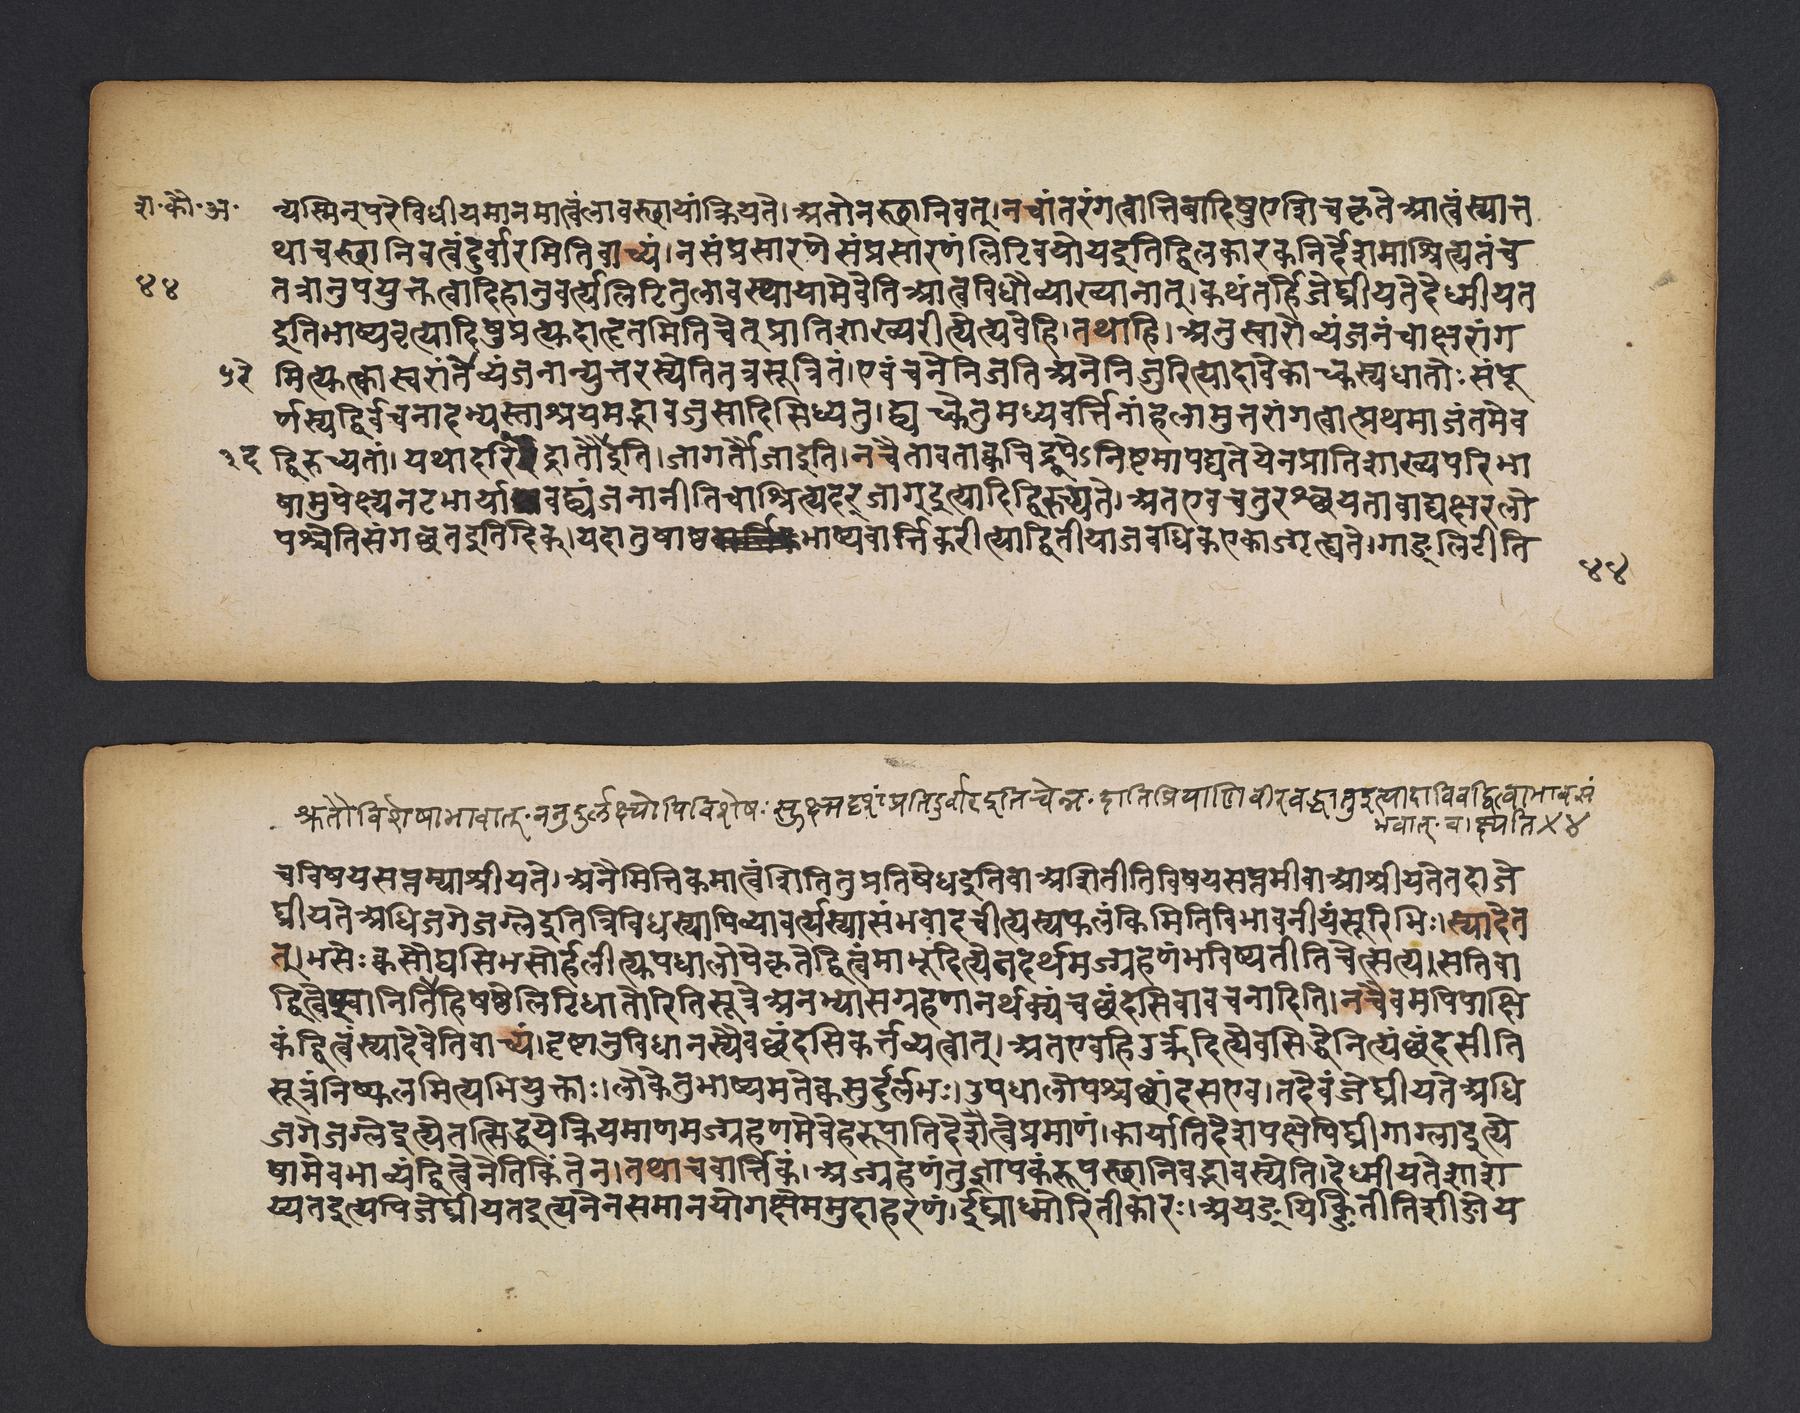 श॰कौ॰अ॰ न्यस्मिन्परेविधीयमानमात्वंलावस्छायांक्रियते।अतोनस्छानिवत्।नचांतरंगत्वात्तिबादिषुएशिचकृतेआत्वंस्यात्त
थाचस्छानिवत्वंदुर्वारमितिवाच्यं।नसंप्रसारणेसंप्रसारणंलिटिवयोयइतिद्विलकारकनिर्देशमाश्रित्यतंच
४४ तत्रानुपयुक्तत्वादिहानुवर्त्यलिटितुलावस्थायामेवेतिआत्वविधौव्याख्यानात्।कथंतर्हिजेघ्रीयतेदेध्मीयत
इतिभाष्यवृत्यादिषुप्रत्युदाहृतमितिचेत्प्रातिशाख्यरीत्येत्यवेहि।तथाहि।अनुस्वारोव्यंजनंचाक्षरांग
५रे मित्युत्कास्वरांतेव्यंजनान्युत्तरस्येतितत्रसूत्रितं।एवंचनेनिजतिअनेनिजुरित्यादावेकाच्कस्यधातोःसंपू
र्णस्यद्विर्वचनादभ्यस्ताश्रयमद्भावजुसादिसिध्यतु।द्व्यच्केतुमध्यवर्त्तिनांहलामुत्तरांगत्वात्प्रथमाजंतमेव
३द द्विरुच्यतां।यथादरिद्रातौदइति।जागर्तौजाइति।नचैतावताक्वचिद्रूपेऽनिष्टमापद्यतेयेनप्रातिशाख्यपरिभा
षामुपेक्ष्यनटभार्यावद्व्यंजनानीतिचाश्रित्यदर्जाग्इत्यादिद्विरुच्यते।अतएवचतुरश्छयतावाद्यक्षरलो
पश्चेतिसंगच्छतइतिदिक्।यदातुषाष्ठभाष्यवार्त्तिकरीत्याद्वितीयाजवधिकएकाज्गृह्यते।गाङ्लिटीति
४४
श्रुतौविशेषाभावात्॰ननुदुर्लक्ष्योपिविशेषःसूक्ष्मदृशंप्रतिदुर्वारइतिचेन्न॰
चविषयसप्तम्याश्रीयते।अनैमित्तिकमात्वंशितितुप्रतिषेधइतिवाअशितीतिविषयसप्तमीवाआश्रीयतेतदाजे
घ्रीयतेअधिजगेजग्लेइतित्रिविधस्यापिव्यावर्त्यस्यासंभवादचीत्यस्यफलंकिमितिविभावनीयंसूरिभिः।स्यादेत
त्।भसेःक्वसौघसिभसोर्हलीत्युपधालोपेकृतेद्वित्वंमाभूदित्येतदर्थमज्ग्रहणंभविष्यतीतिचेत्सत्य।सतिवा
द्वित्वेहिषष्ठेलिटिधातोरितिसूत्रेअनभ्यासग्रहणानर्थक्यंचछंदसिवावचनादिति।नचैवमपिपाक्षि
कंद्वित्वंस्यादेवेतिवाच्यं।दृष्टानुविधानस्यैवछंदसिकर्त्तव्यत्वात्।अतएवहिउर्ऋदित्येवसिद्धेनित्यंछंदसीति
सूत्रंनिष्फलमित्यभियुक्ताः।लोकेतुभाष्यमतेक्वसुर्दुर्लभः।उपधालोपश्चछांदसएव।तदेवंजेघ्रीयतेअधि
जगेजग्लेइत्येतत्सिद्धयेक्रियमाणमज्ग्रहणमेवेहरूपातिदेशत्वेप्रमाणं।कार्यातिदेशपक्षेपिघ्रीगाग्लाइत्ये
षामेवभाव्यंद्वित्वेनेतिकिंतेन।तथाचवार्त्तिकं।अज्ग्रहणंतुज्ञापकंरूपस्छानिवद्भावस्येति।देध्मीयतेशाश
य्यतइत्यपिजेघ्रीयतइत्यनेनसमानयोगक्षेममुदाहरणं।ईघ्राध्मोरितीकारः।अयङ्यिक्ङितीतिशीङोय